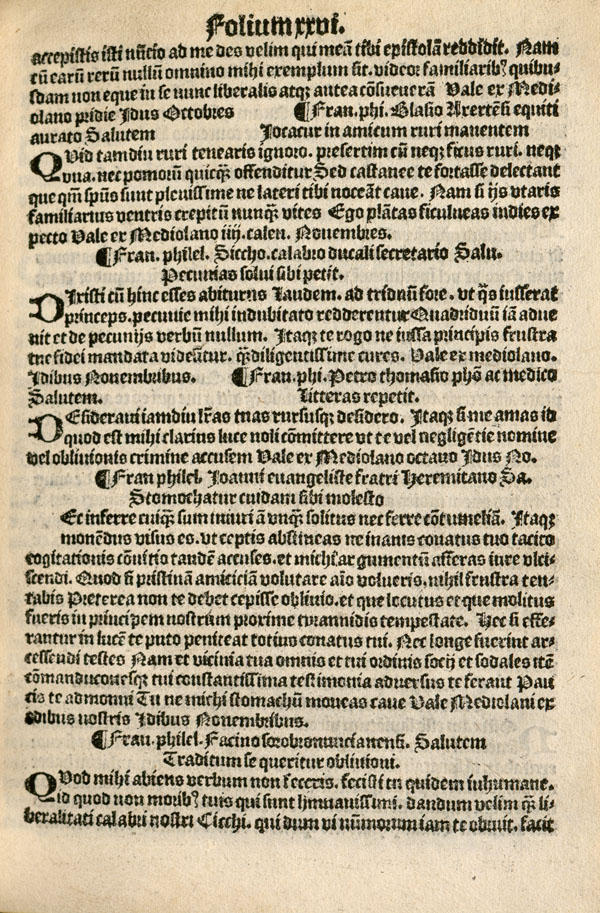 Folium xxvi.
accepistis isti nūcio ad me des velim qui meā tibi epistolā reddidit. Nam
cū carū rerū nullū omnino mihi exemplum sit. videor familiarib⁹ quibu-
sdam non eque in se nunc liberalis atqꝫ antea cōsueverā Vale ex Medi-
olano pridie Idus Octobres ¶Fran. phi. Blasio Arertēsi equiti
aurato Salutem Jocatur in amicum ruri manentem
QVid tamdiu ruri tenearis ignoro. presertim cū neqꝫ ficus ruri. neqꝫ
vua. nec pomorū quicqꝫ offenditur Sed castanee te fortasse delectant
que qm̄ sp̄us sunt plenissime ne lateri tibi noceāt cave. Nam si ijs vtaris
familiarius ventris crepitū nunqꝫ vites Ego plātas ficulneas indies ex
pecto Vale ex Mediolano iiij. calen. Novembres.
¶Fran. philel. Siccho. calabro ducali secretario Salu.
Pecunias solui sibi petit.
DIxisti cū hinc esses abiturus Laudem. ad triduū fore. vt q̄s iusserat
princeps. pecunie mihi indubitato redderentur Quadriduū iā adue
nit et de pecunijs verbū nullum. Itaqꝫ te rogo ne iussa principis frustra
tue fidei mandata videātur. qꝫ diligentissime cures. Vale ex mediolano.
Idibus Novembribus. ¶Fran. phi. Petro thomasio phō ac medico
Salutem. Litteras repetit.
DEsideravi iamdiu lr̄as tuas rursusqꝫ desidero. Itaqꝫ si me amas id
quod est mihi clarius luce noli cōmittere vt te vel negligētie nomine
vel oblivionis crimine accusem Vale ex Mediolano octavo Idus No.
¶Fran philel. Joanni euangeliste fratri Heremitano Sa.
Stomochatur cuidam sibi molesto
Et inferre cuiqꝫ sum iniuriā vnqꝫ solitus nec ferre cōtumeliā. Itaqꝫ
monēdus visus es. vt ceptis abstineas ne inanis conatus tuo tacito
cogitationis cōuitio tandē accuses. et michi argumentū afferas iure vlci-
scendi. Quod si pristinā amiciciā volutare aīo volueris. nihil frustra ten-
tabis Preterea non te debet cepisse oblivio. et que locutus et que molitus
fueris in principem nostrum proxime tyrannidis tempestate. Hec si effe-
rantur in lucē te puto peniteat totius conatus tui. Nec longe fuerint ar-
cessendi testes Nam et vicinia tua omnis et tui ordinis socij et sodales itē
cōmanducōnesqꝫ tui constantissima testimonia adversus te ferant Pau
cis te admonui Tu ne michi stomachū moueas cave Vale Mediolani ex
edibus nostris Idibus Novembribus.
¶Fran. philel. Facino Salutem
Traditum se queritur oblivioni.
QVod mihi abiens verbum non feceris. fecisti tu quidem inhumane.
id quod non morib⁹ tuis qui sunt humanissimi. dandum velim qꝫ li-
beralitati calabri nostri Cicchi. qui dum vi nūmorum iam te obruit. facit